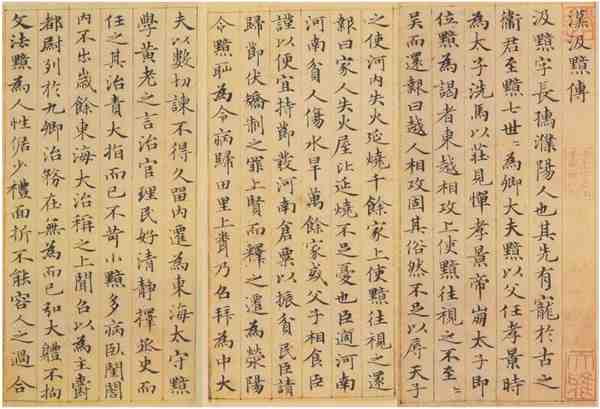 漢汲黯傳
汲黯字長孺濮陽人也其先有寵於古之
衛君至黯七世〻為卿大夫黯以父任孝景時
為太子洗馬以莊見憚孝景帝崩太子即
位黯為謁者東越相攻上使黯往視之不至〻
吴而還報曰越人相攻固其俗然不足以辱天子
之使河内失火延燒千餘家上使黯往視之還
報曰家人失火屋比延燒不足憂也臣過河南
河南貧人傷水旱萬餘家或父子相食臣
謹以便宜持節發河南倉粟以振貧民臣請
歸節伏矯制之罪上賢而釋之還為滎陽
令黯恥為令病歸田里上聞乃召拜為中大
夫以數切諫不得久留内遷為東海太守黯
學黄老之言治官理民好清靜擇丞史而
任之其治責大指而已不苛小黯多病卧閨閤
内不出歲餘東海大治稱之上聞召以為主爵
都尉列於九卿治務在無為而已弘大體不拘
文法黯為人性倨少禮面折不能容人之過合